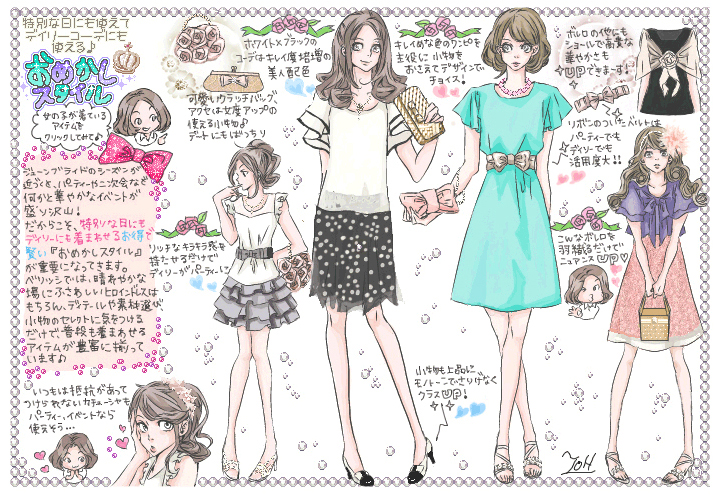 特別な日にも使えて
デイリーコーデにも
使える♪
おめかし
スタイル
女の子が着ている
アイテムを
クリックしてみて♪
ジューンブライドのシーズンが
近づくと、パーティーや二次会など
何かと華やかなイベントが
盛り沢山!
だからこそ、特別な日にも
デイリーにも着まわせるお得で
賢い『おめかしスタイル』
が重要になってきます。
では、晴れやかな
場にふさわしいヒロインドレスは
もちろん、ディテールや素材選び、
小物のセレクトに気をつける
だけで普段も着まわせる
アイテムが豊富に揃って
います♪
いつもは抵抗があって
つけられないカチューシャも
パーティー、イベントなら
使えそう…
ホワイト×ブラックの
コーデはキレイ度倍増の
美人配色
可愛いクラッチバッグ、
アクセは女度アップの
使える小物♪
デートにもばっちり
リッチなキラキラ感を
持たせるだけで
デイリーがパーティーに
キレイめな色のワンピを
主役に小物も
おさえてデザインで
チョイス!
小物も上品に
モノトーンでさりげなく
クラスUP!
ボレロの他にも
ショールで高貴な
華やかさも
UPできます!
リボンのついたベルトは
パーティーでも
デイリーでも
活用度大!!
こんなボレロを
羽織るだけで
ニュアンスUP♡